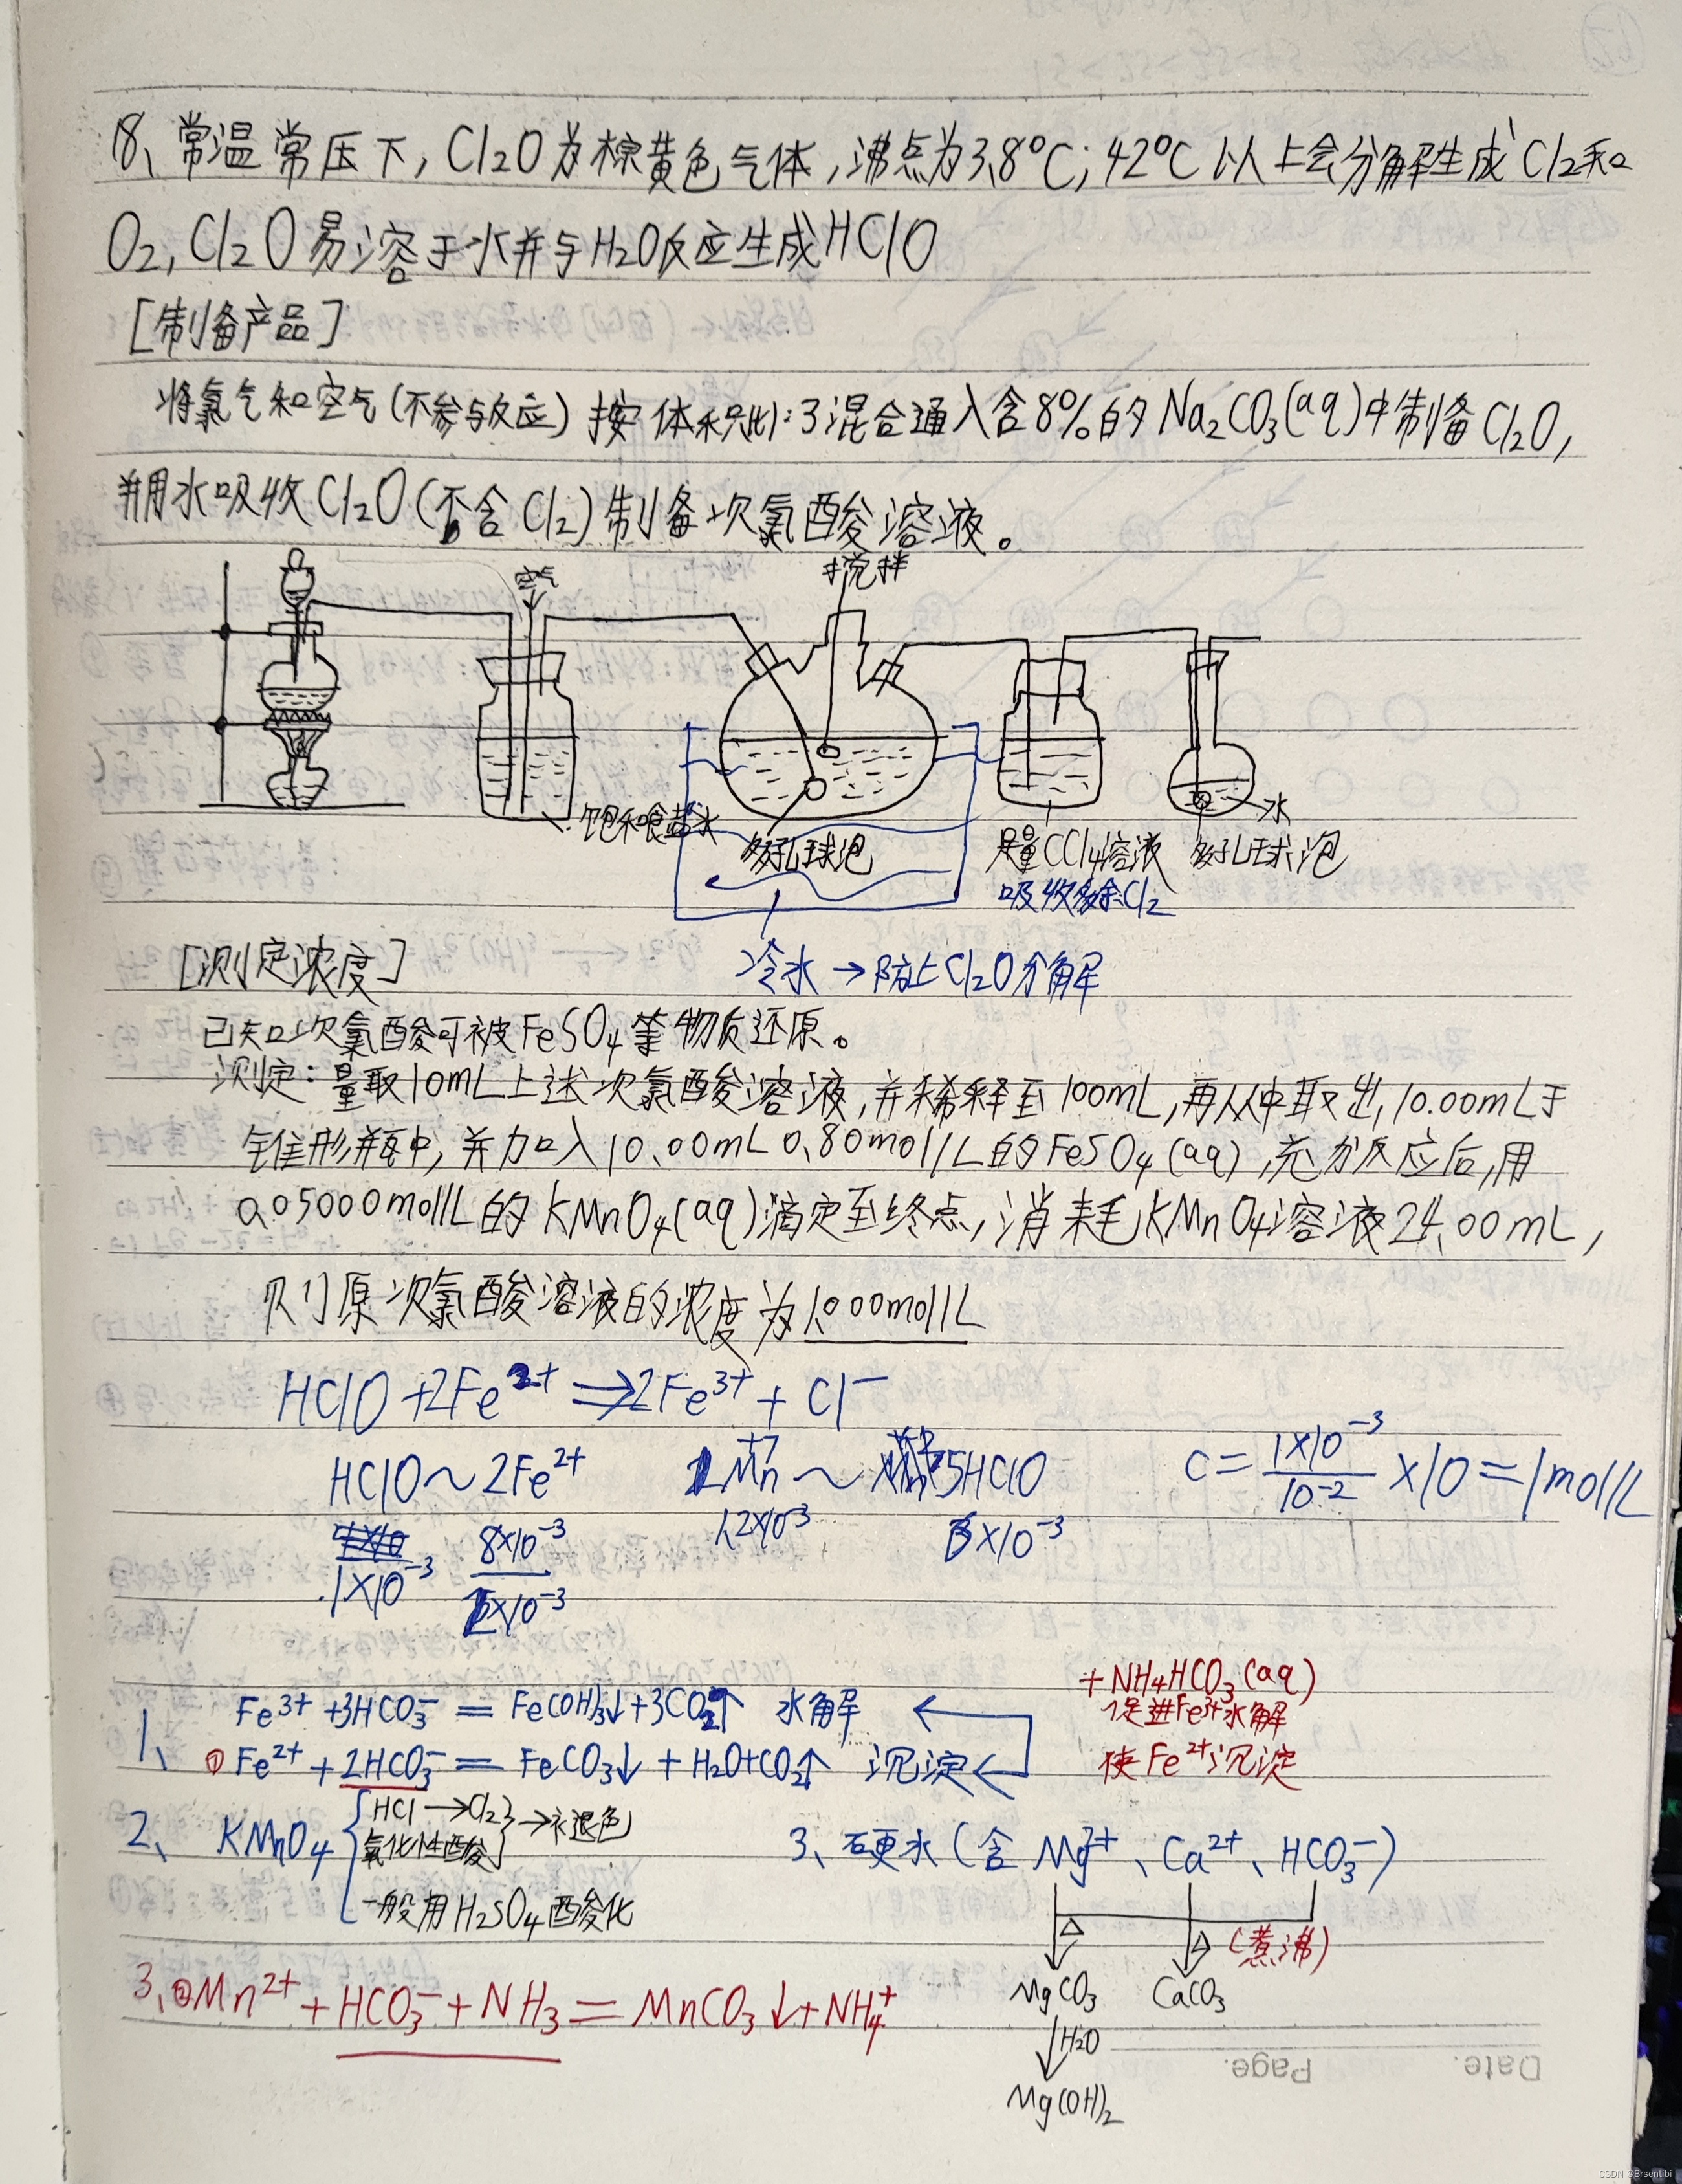 18、常温常压下,Cl₂O为棕黄色气体,沸点为3.8°C;42°C以上会分解生成Cl₂和
O₂,Cl₂O易溶于水并与H₂O反应生成HClO
[制备产品]
将氯气和空气(不参与反应)按体积比1:3混合通入含8%的Na₂CO₃(aq)中制备Cl₂O,
并用水吸收Cl₂O(不含Cl₂)制备次氯酸溶液。
空气
搅拌
饱和食盐水
多孔球泡
足量CCl₄溶液
吸收多余Cl₂
水
多孔球泡
冷水→防止Cl₂O分解
[测定浓度]
已知次氯酸可被FeSO₄等物质还原。
测定:量取10mL上述次氯酸溶液,并稀释至100mL,再从中取出10.00mL于
锥形瓶中,并加入10.00mL 0.80mol/L的FeSO₄(aq),充分反应后,用
0.05000mol/L的KMnO₄(aq)滴定至终点,消耗KMnO₄溶液24.00mL,
则原次氯酸溶液的浓度为1.000mol/L
HClO+2Fe²⁺⇒2Fe³⁺+Cl⁻
HClO～2Fe²⁺
Mn～5HClO
C=1×10⁻³/10⁻²×10=1mol/L
8×10⁻³
1.2×10⁻³
×10⁻³
1×10⁻³
×10⁻³
+NH₄HCO₃(aq)
促进Fe³⁺水解
使Fe²⁺沉淀
1、
Fe³⁺+3HCO₃⁻=Fe(OH)₃↓+3CO₂↑ 水解
①Fe²⁺+2HCO₃⁻=FeCO₃↓+H₂O+CO₂↑ 沉淀
2、KMnO₄
HCl→Cl₂
氧化性酸
→补退色
一般用H₂SO₄酸化
3、硬水(含Mg²⁺、Ca²⁺、HCO₃⁻)
△
△
(煮沸)
MgCO₃
CaCO₃
H₂O
Mg(OH)₂
3、②Mn²⁺+HCO₃⁻+NH₃=MnCO₃↓+NH₄⁺
Date. Page.
CSDN @Brsentibi